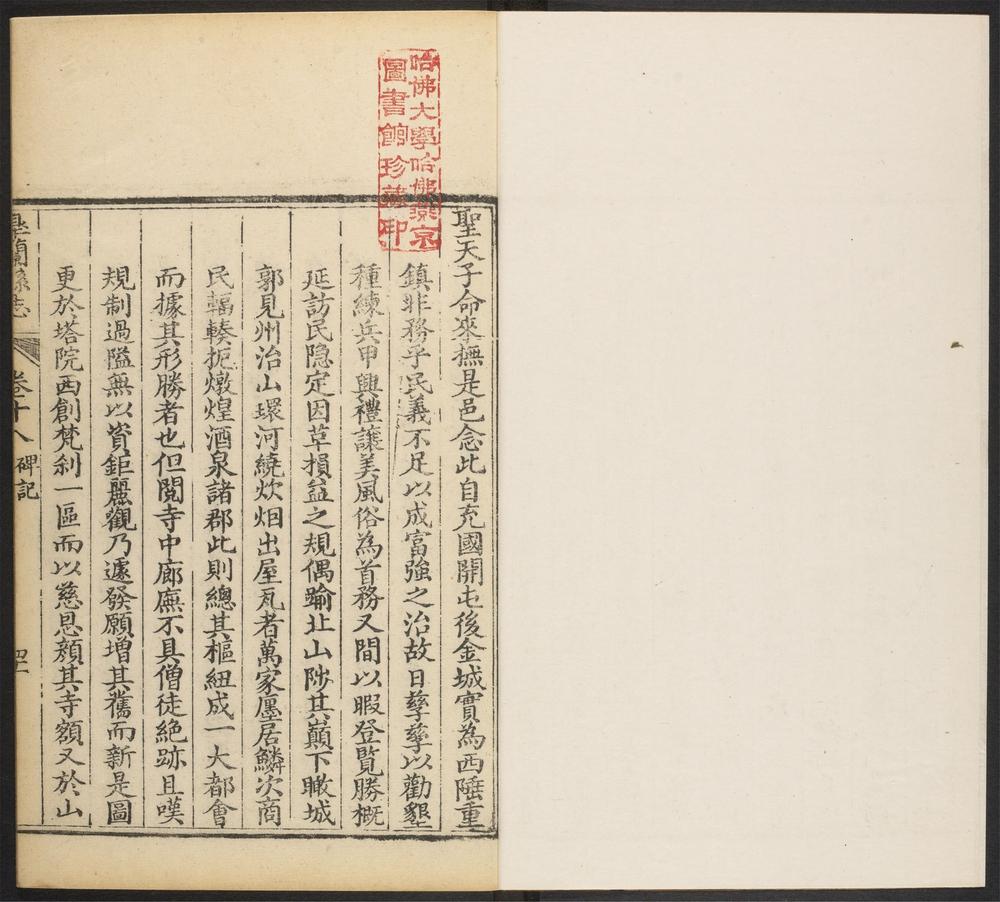 哈佛大學哈佛燕京
圖書館珍藏印
聖天子命來撫是邑念此自充國開屯後金城實為西陲重
鎮非務乎民義不足以成富強之治故日孳孳以勸墾
種練兵甲興禮讓美風俗為首務又間以暇登覧勝概
延訪民隐定因革損益之規偶踰北山陟其巔下瞰城
郭見州治山環河繞炊烟出屋瓦者萬家廛居鱗次商
民輻輳扼燉煌酒泉諸郡此則總其樞紐成一大都會
而據其形勝者也但閱寺中廊廡不具僧徒絶跡且嘆
規制過隘無以資鉅麗觀乃遽發願增其舊而新是圖
更於塔院西創梵刹一區而以慈恩顏其寺額又於山
皐蘭縣志
卷十八
碑記